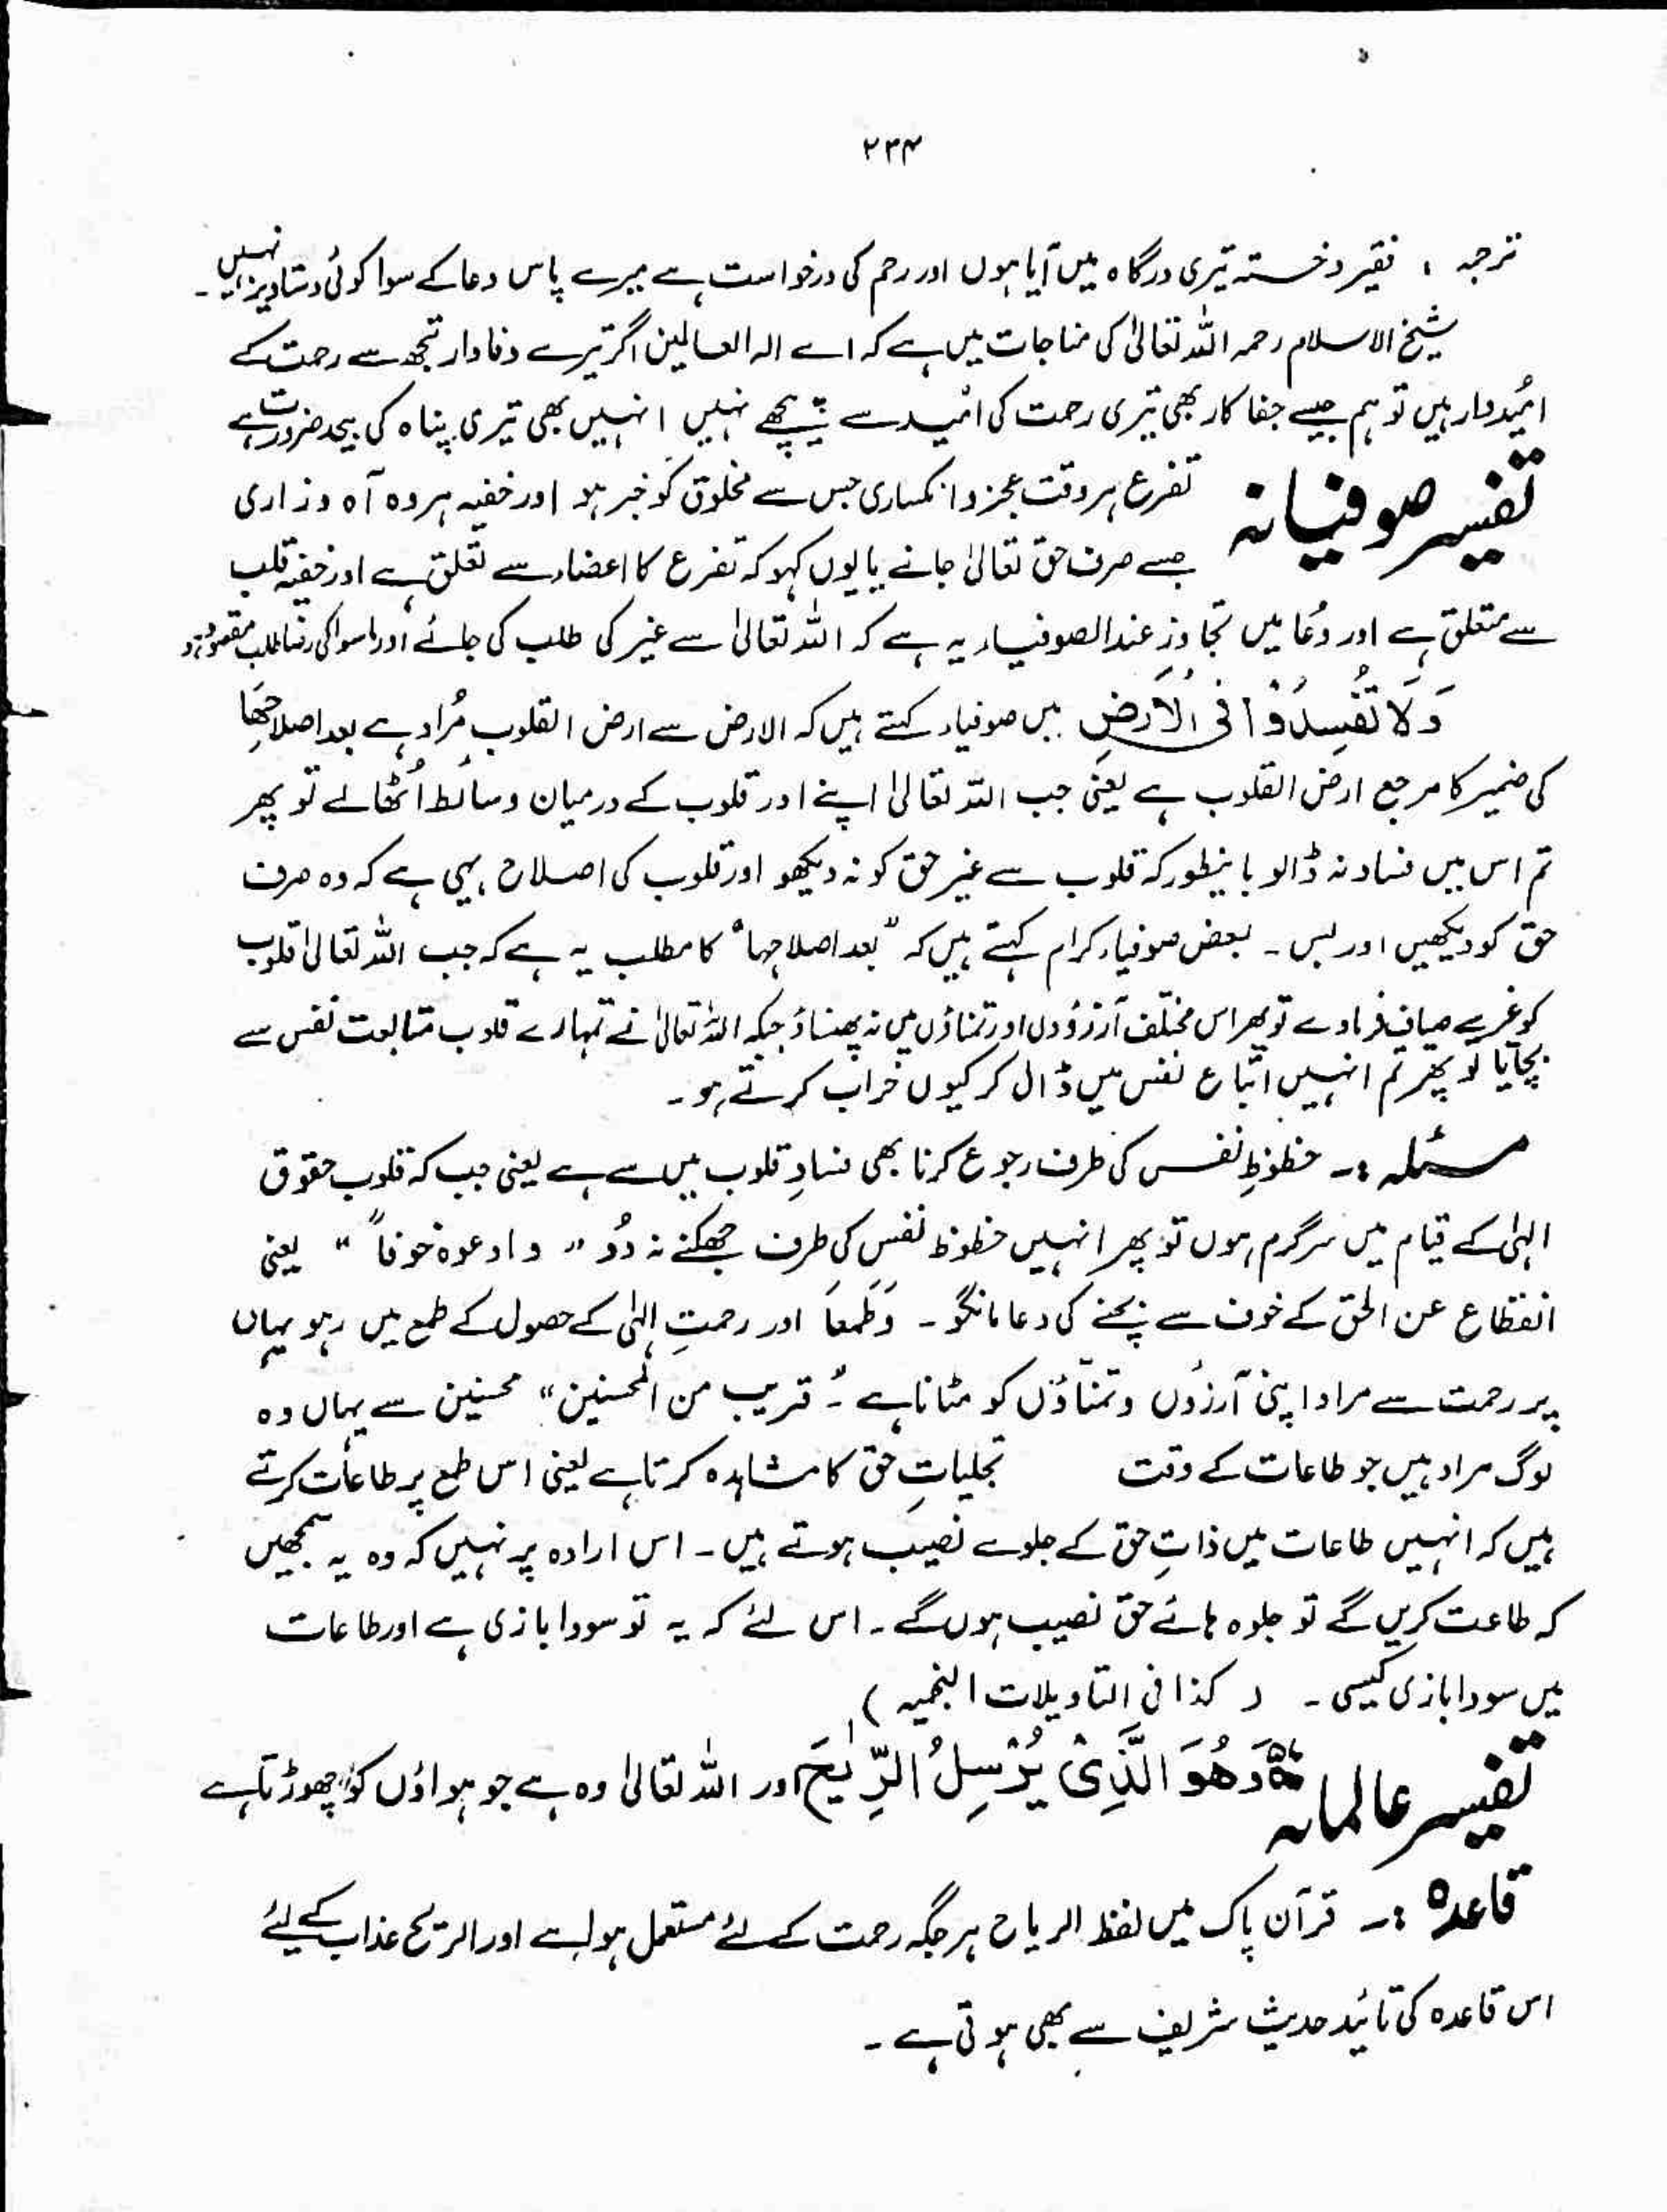 ۲۳۴
ترجمہ ؛ فقیر و خستہ تیری درگاہ میں آیا ہوں اور رحم کی درخواست ہے میرے پاس دعا کے سوا کوئی دستاویز نہیں ۔
شیخ الاسلام رحمہ اللہ تعالیٰ کی مناجات میں ہے کہ اے الہ العالمین اگر تیرے وفادار تجھ سے رحمت کے
امیدوار ہیں تو ہم جیسے جفا کار بھی تیری رحمت کی امید سے پیچھے نہیں انہیں بھی تیری پناہ کی بیحد ضرورت ہے
تفسیر صوفیانہ تضرع ہر وقت عجز و انکساری جس سے مخلوق کو خبر ہو اور خفیہ ہر وہ آہ و زاری
جسے صرف حق تعالیٰ جانے یا یوں کہو کہ تضرع کا اعضاء سے تعلق ہے اور خفیہ قلب
سے متعلق ہے اور دُعا میں تجاوز عند الصوفیاء یہ ہے کہ اللہ تعالیٰ سے غیر کی طلب کی جائے اور ماسوا کی رضا طلب مقصود ہو
وَلَا تُفْسِدُوْا فِی الْاَرْضِ میں صوفیاء کہتے ہیں کہ الارض سے ارض القلوب مُراد ہے بعد اصلاحِھَا
کی ضمیر کا مرجع ارض القلوب ہے یعنی جب اللہ تعالیٰ اپنے اور قلوب کے درمیان وسائط اُٹھالے تو پھر
تم اس میں فساد نہ ڈالو بایں طور کہ قلوب سے غیر حق کو نہ دیکھو اور قلوب کی اصلاح یہی ہے کہ وہ صرف
حق کو دیکھیں اور بس ۔ بعض صوفیاء کرام کہتے ہیں کہ "بعد اصلاحہا" کا مطلب یہ ہے کہ جب اللہ تعالیٰ قلوب
کو غیر سے صاف فرما دے تو پھر اس مختلف آرزوؤں اور تمناؤں میں نہ پھنساؤ جبکہ اللہ تعالیٰ نے تمہارے قلوب متابعت نفس سے
بچایا تو پھر تم انہیں اتباع نفس میں ڈال کر کیوں خراب کرتے ہو ۔
مسئلہ :۔ حظوظِ نفس کی طرف رجوع کرنا بھی فسادِ قلوب میں سے ہے یعنی جب کہ قلوب حقوق
الہٰی کے قیام میں سرگرم ہوں تو پھر انہیں حظوظ نفس کی طرف جھکنے نہ دُو "وادعوہ خوفاً" یعنی
انقطاع عن الحق کے خوف سے بچنے کی دعا مانگو ۔ وَطَمَعاً اور رحمتِ الہٰی کے حصول کے طمع میں رہو یہاں
پر رحمت سے مراد اپنی آرزؤں و تمناؤں کو مٹانا ہے ۔ "قریب من المحسنین" محسنین سے یہاں وہ
لوگ مراد ہیں جو طاعات کے وقت تجلیاتِ حق کا مشاہدہ کرتا ہے یعنی اس طمع پر طاعات کرتے
ہیں کہ انہیں طاعات میں ذاتِ حق کے جلوے نصیب ہوتے ہیں ۔ اس ارادہ پر نہیں کہ وہ یہ سمجھیں
کہ طاعت کریں گے تو جلوہ ہائے حق نصیب ہوں گے ۔ اس لئے کہ یہ تو سودا بازی ہے اور طاعات
میں سودا بازی کیسی ۔ ( کذا فی التاویلات النجمیہ )
تفسیر عالمانہ وَھُوَ الَّذِیْ یُرْسِلُ الرِّیٰحَ اور اللہ تعالیٰ وہ ہے جو ہواؤں کو چھوڑتا ہے
قاعدہ :۔ قرآن پاک میں لفظ الریاح ہر جگہ رحمت کے لئے مستعمل ہوا ہے اور الریح عذاب کے لیئے
اس قاعدہ کی تائید حدیث شریف سے بھی ہوتی ہے ۔